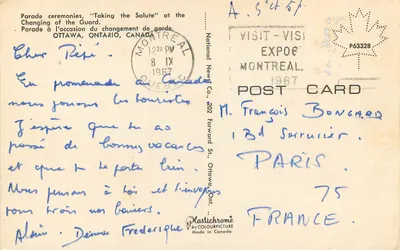 Parade ceremonies, "Taking the Salute" at the
Changing of the Guard.
Parade à l'occasion du changement de garde.
OTTAWA, ONTARIO, CANADA
Cher Pépé.
En promenade au Canada
nous jouons les touristes
J'espère que tu as
passé de bonnes vacances
et que tu te portes bien.
Nous pensons à toi et t'envoyons
tous trois nos baisers.
Alain. Denise Frederique
MONTREAL
PM
8 IX
1967
QUEBEC
National News Co., 202
Ottawa
Plastichrome
COLOURPICTURE
Made in Canada
VISIT - VISI
EXPO6
MONTREAL.
1967
P63328
POST CARD
M. François BONGARD
1 Bd Serrurier
PARIS
75
FRANCE.